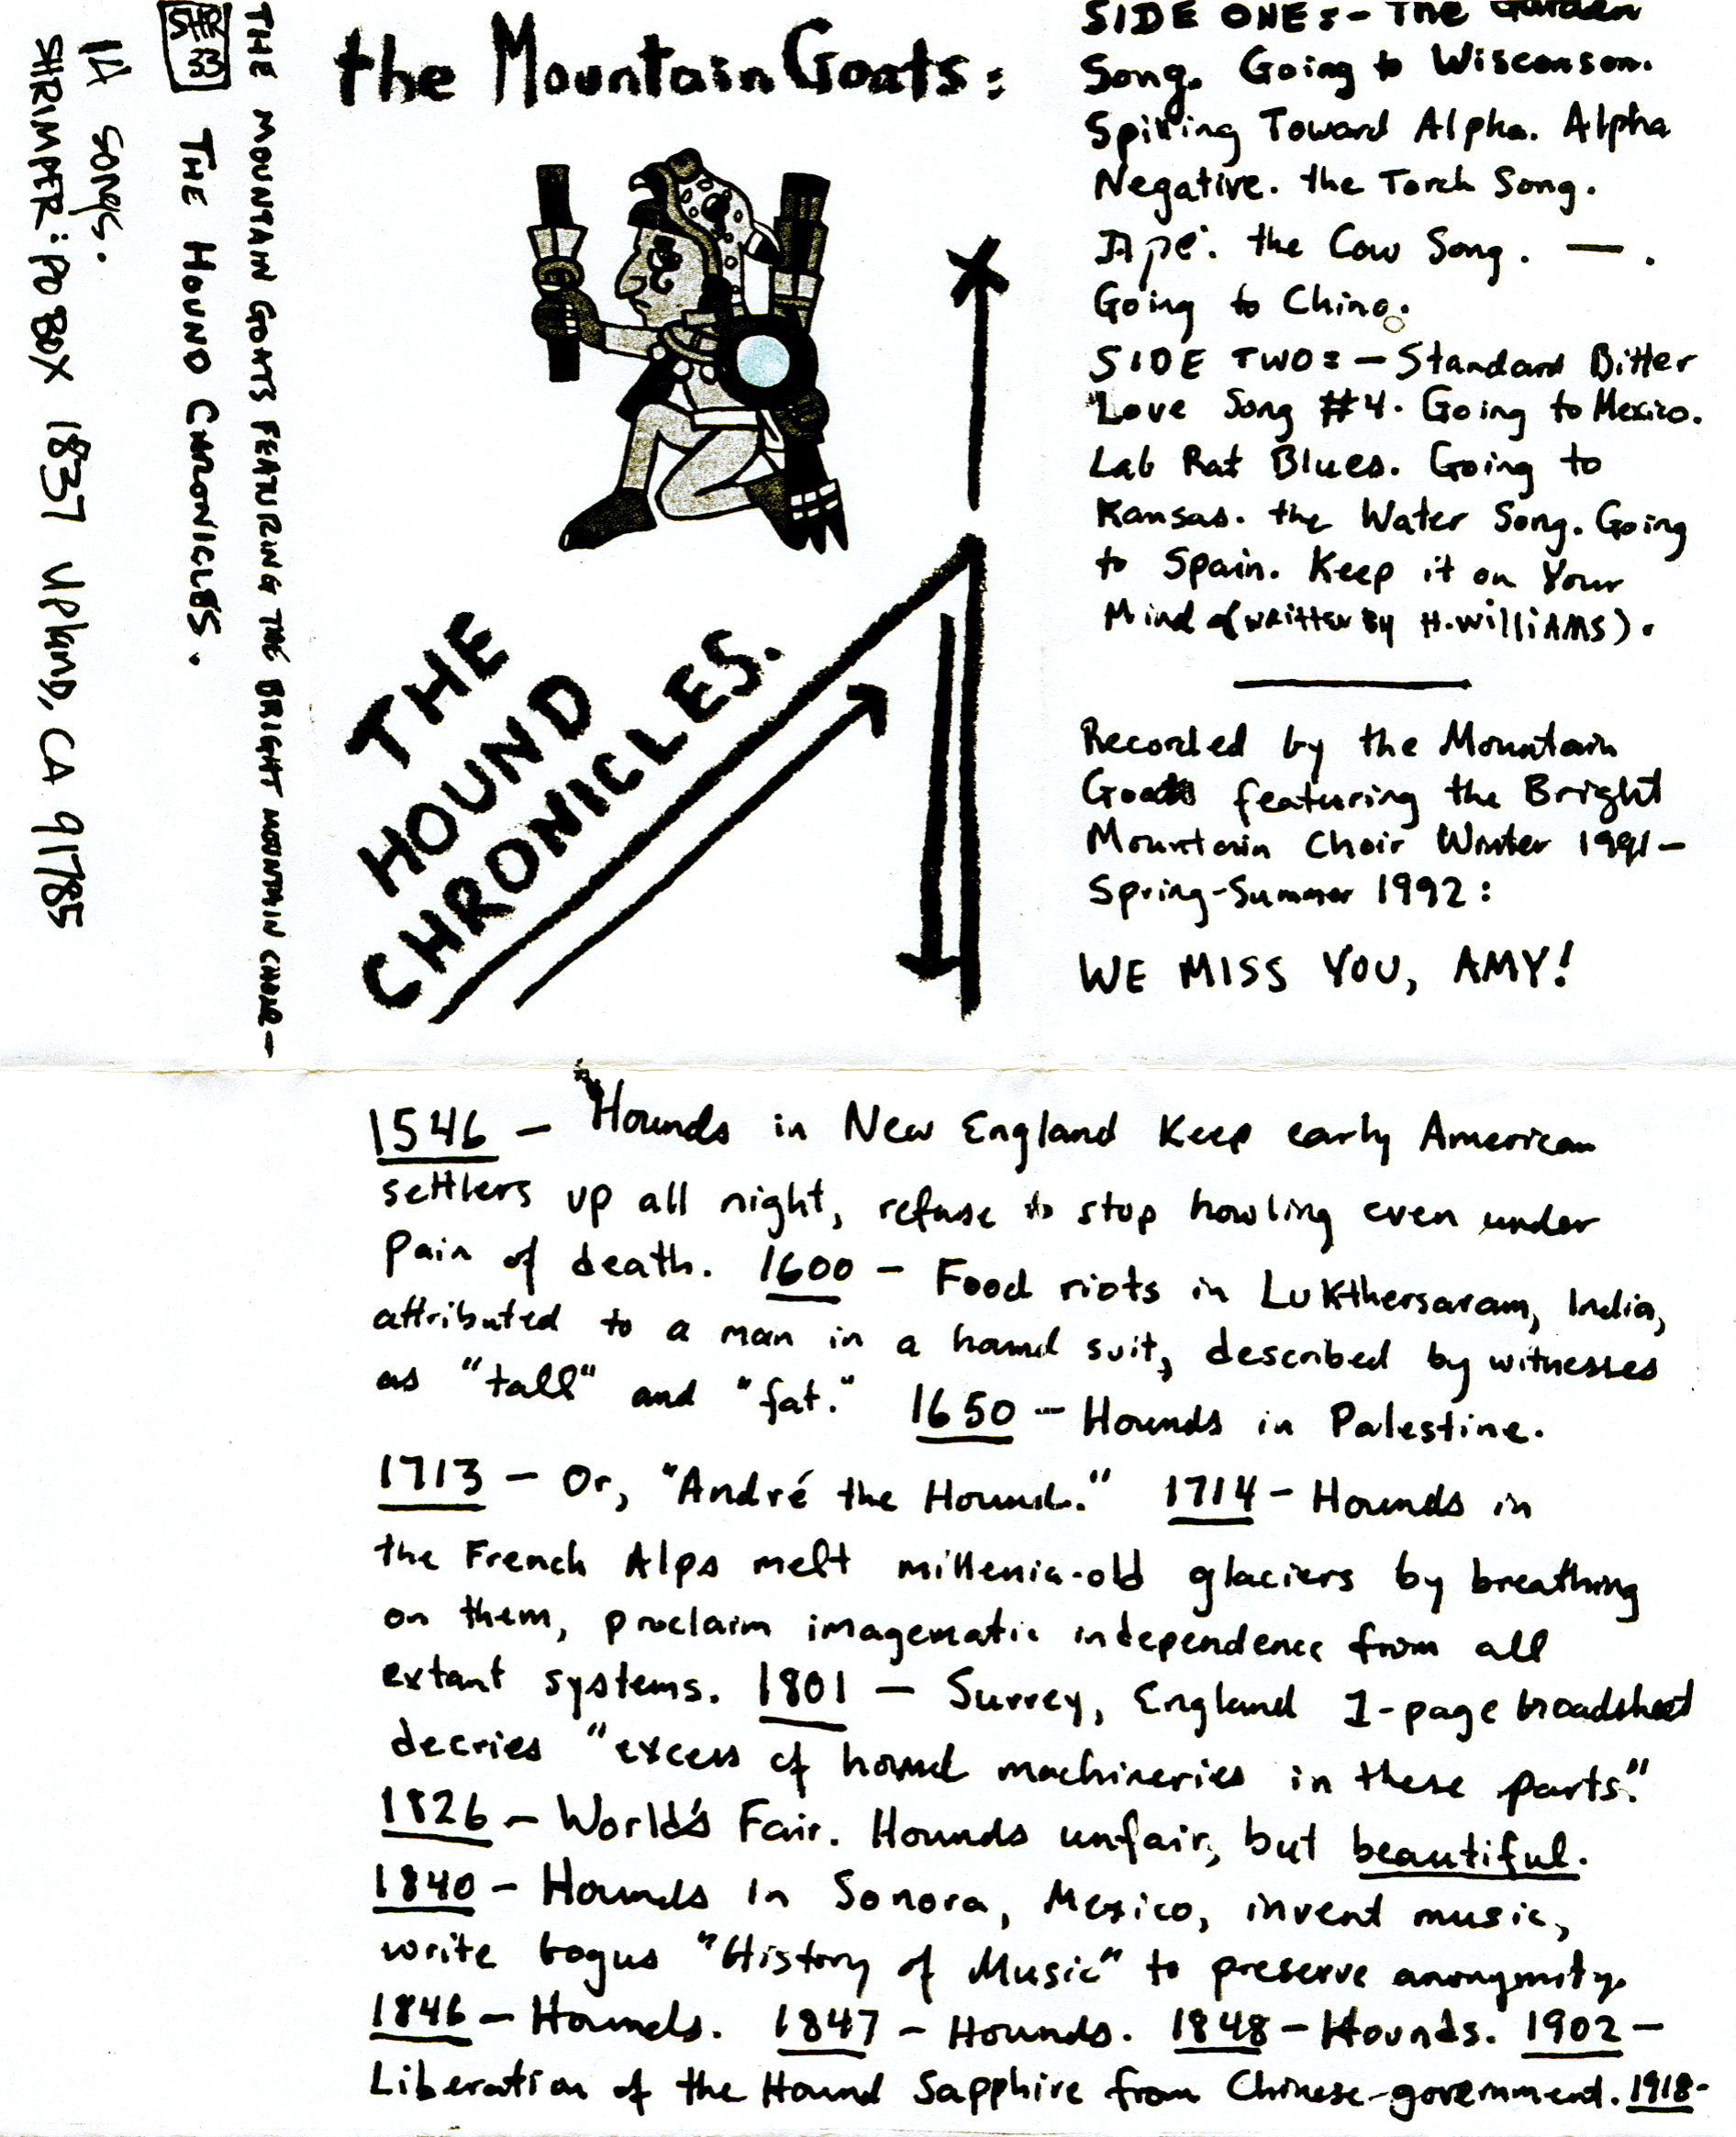 SHRIMPER: PO BOX 1837 UPland, CA 91785
SONGS.
SHR
33
THE HOUND CHRONICLES.
THE MOUNTAIN GOATS FEATURING THE BRIGHT MOUNTAIN CHOIR—
the Mountain Goats:
THE
HOUND
CHRONICLES.
SIDE ONE:- The Garden
Song. Going to Wisconson.
Spilling Toward Alpha. Alpha
Negative. the Torch Song.
Ape. the Cow Song. — .
Going to Chino.
SIDE TWO: — Standard Bitter
Love Song #4. Going to Mexico.
Lab Rat Blues. Going to
Kansas. the Water Song. Going
to Spain. Keep it on Your
Mind (written by H. williAMS).
Recorded by the Mountain
Goats featuring the Bright
Mountain Choir Winter 1991-
Spring-Summer 1992:
WE MISS YOU, AMY!
1546 - Hounds in New England Keep early American
settlers up all night, refuse to stop howling even under
pain of death. 1600 - Food riots in Lukthersaram, India,
attributed to a man in a hound suit, described by witnesses
as "tall" and "fat." 1650 - Hounds in Palestine.
1713 - Or, "André the Hound." 1714 - Hounds in
the French Alps melt millenia-old glaciers by breathing
on them, proclaim imagematic independence from all
extant systems. 1801 - Surrey, England 1-page broadsheet
decries "excess of hound machineries in these parts."
1826 - World's Fair. Hounds unfair, but beautiful.
1840 - Hounds in Sonora, Mexico, invent music,
write bogus "History of Music" to preserve anonymity.
1846 - Hounds. 1847 - Hounds. 1848 - Hounds. 1902 -
Liberation of the Hound Sapphire from Chinese-government. 1918-